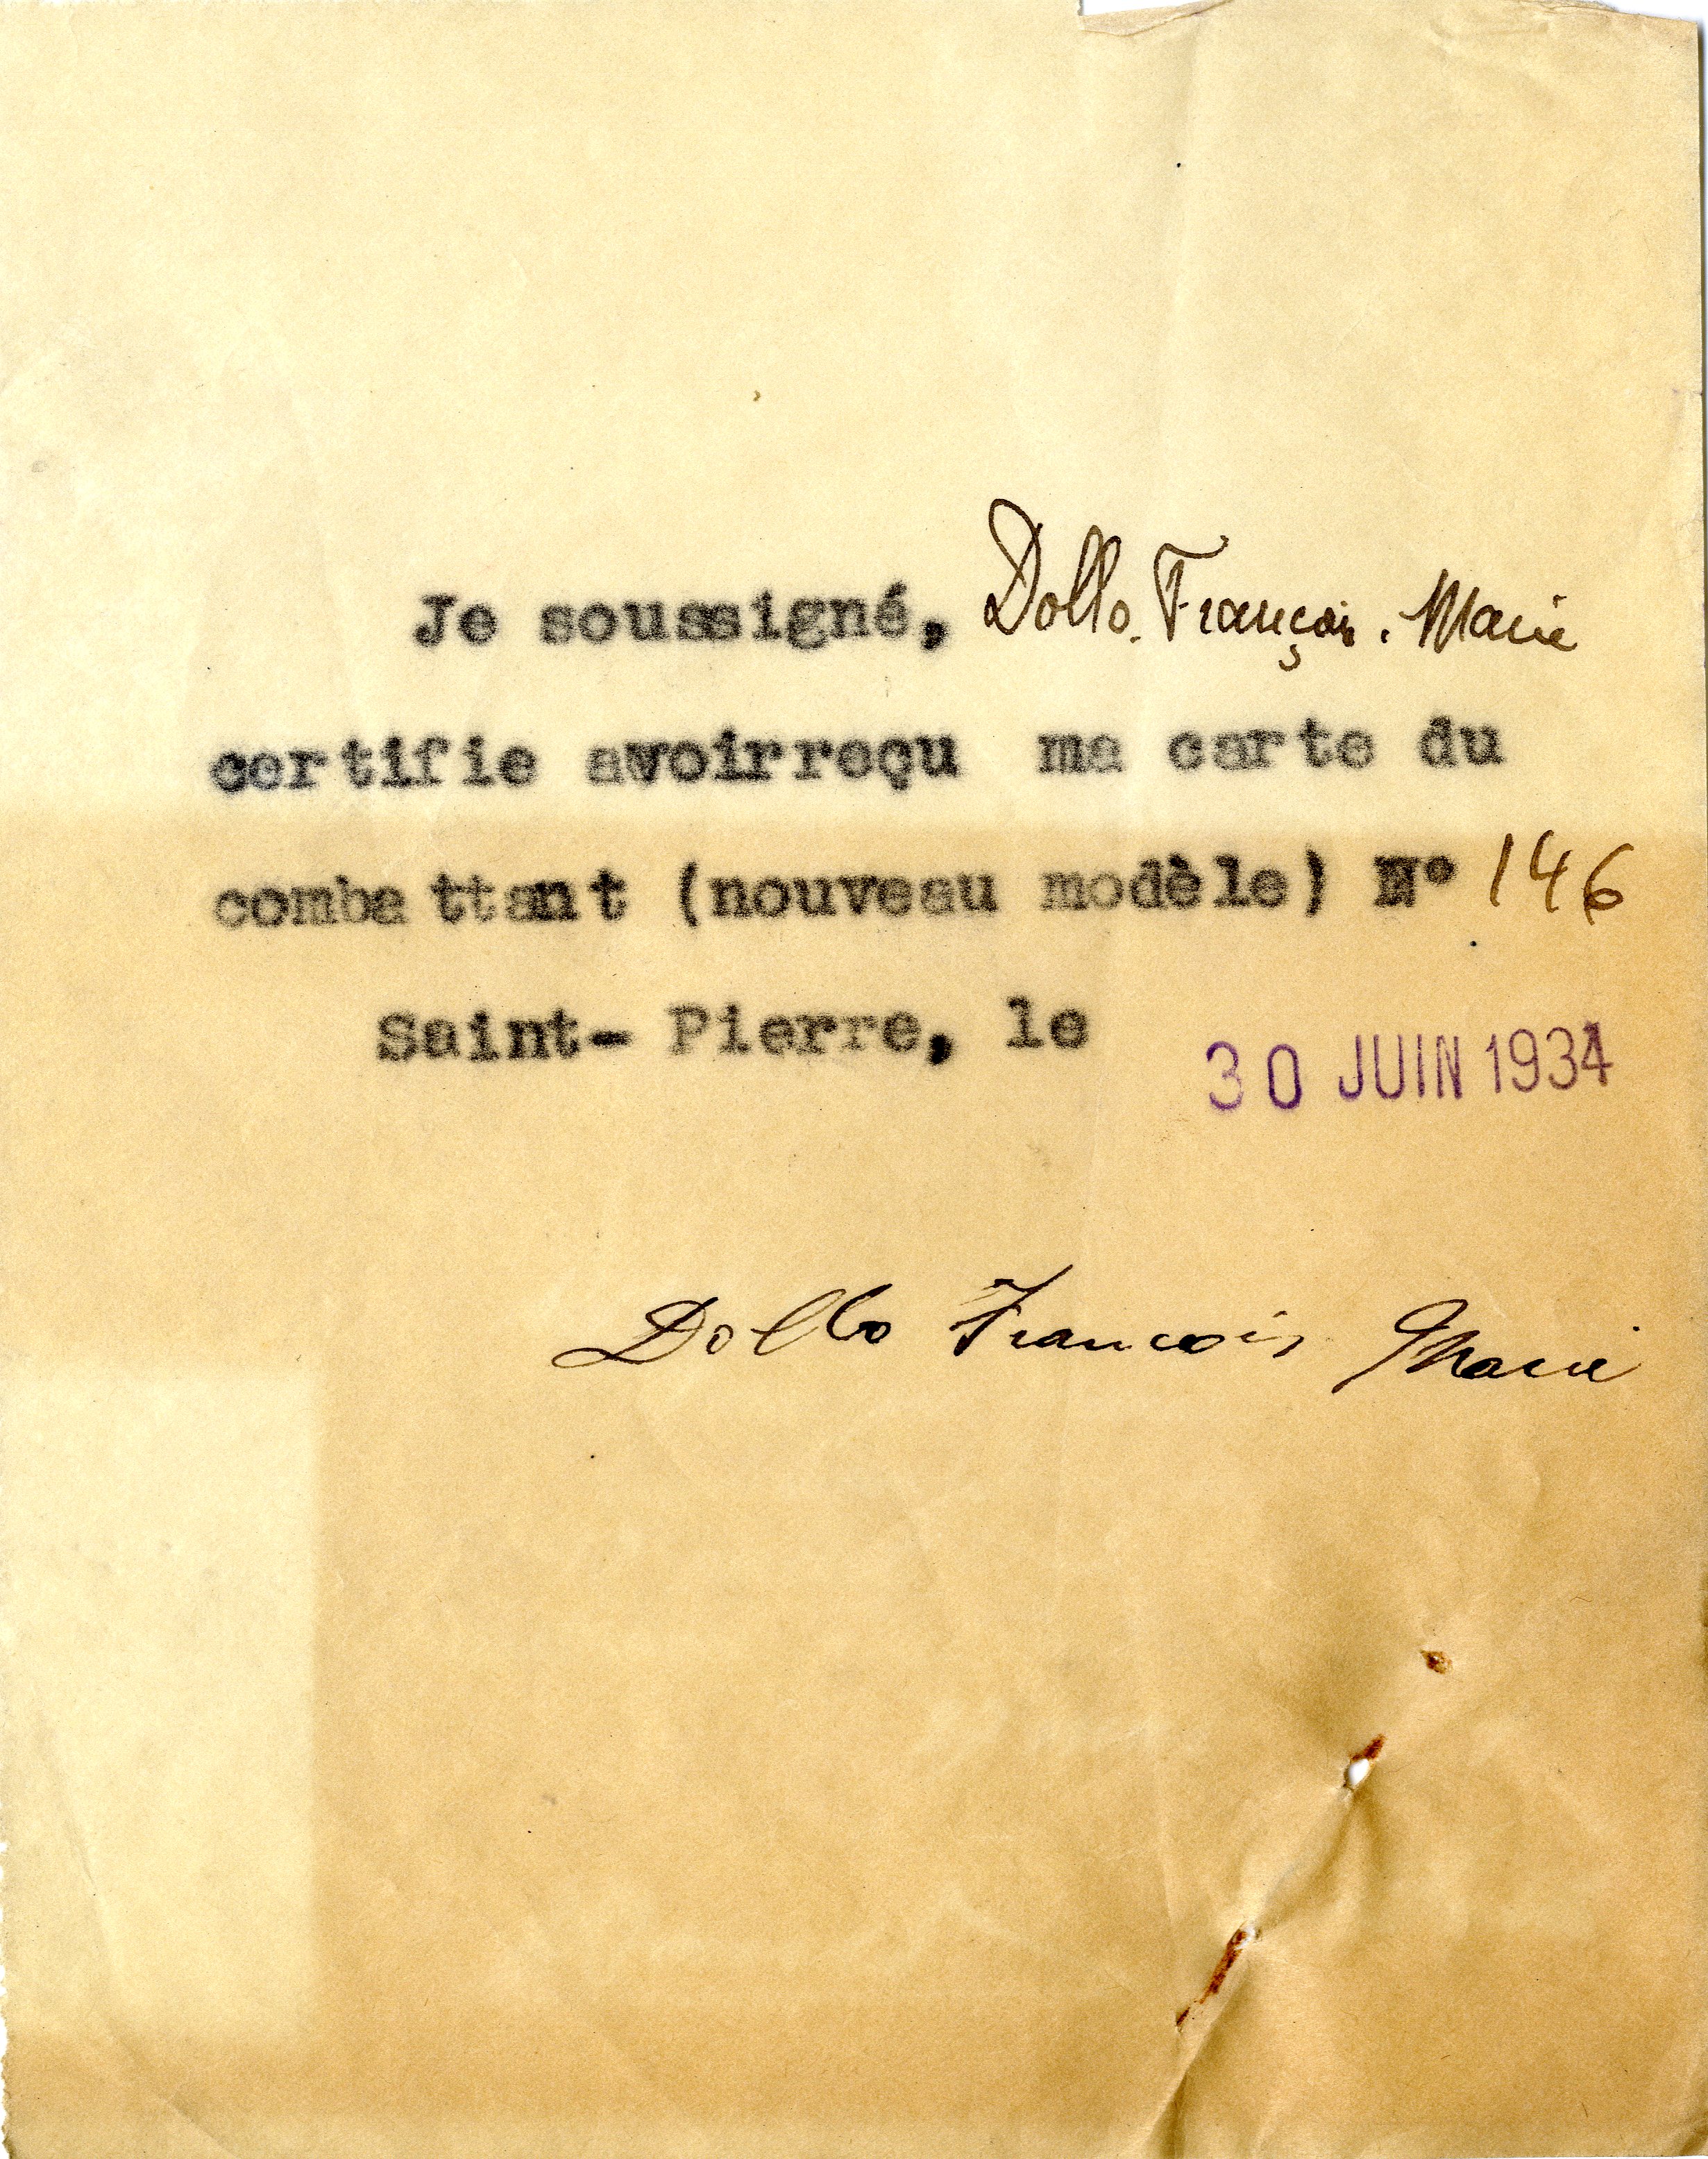 Je soussigné, Dollo. François. Marie
certifie avoirreçu ma carte du
combattant (nouveau modèle) N° 146
Saint- Pierre, le 30 JUIN 1934
Dollo Francois Marie